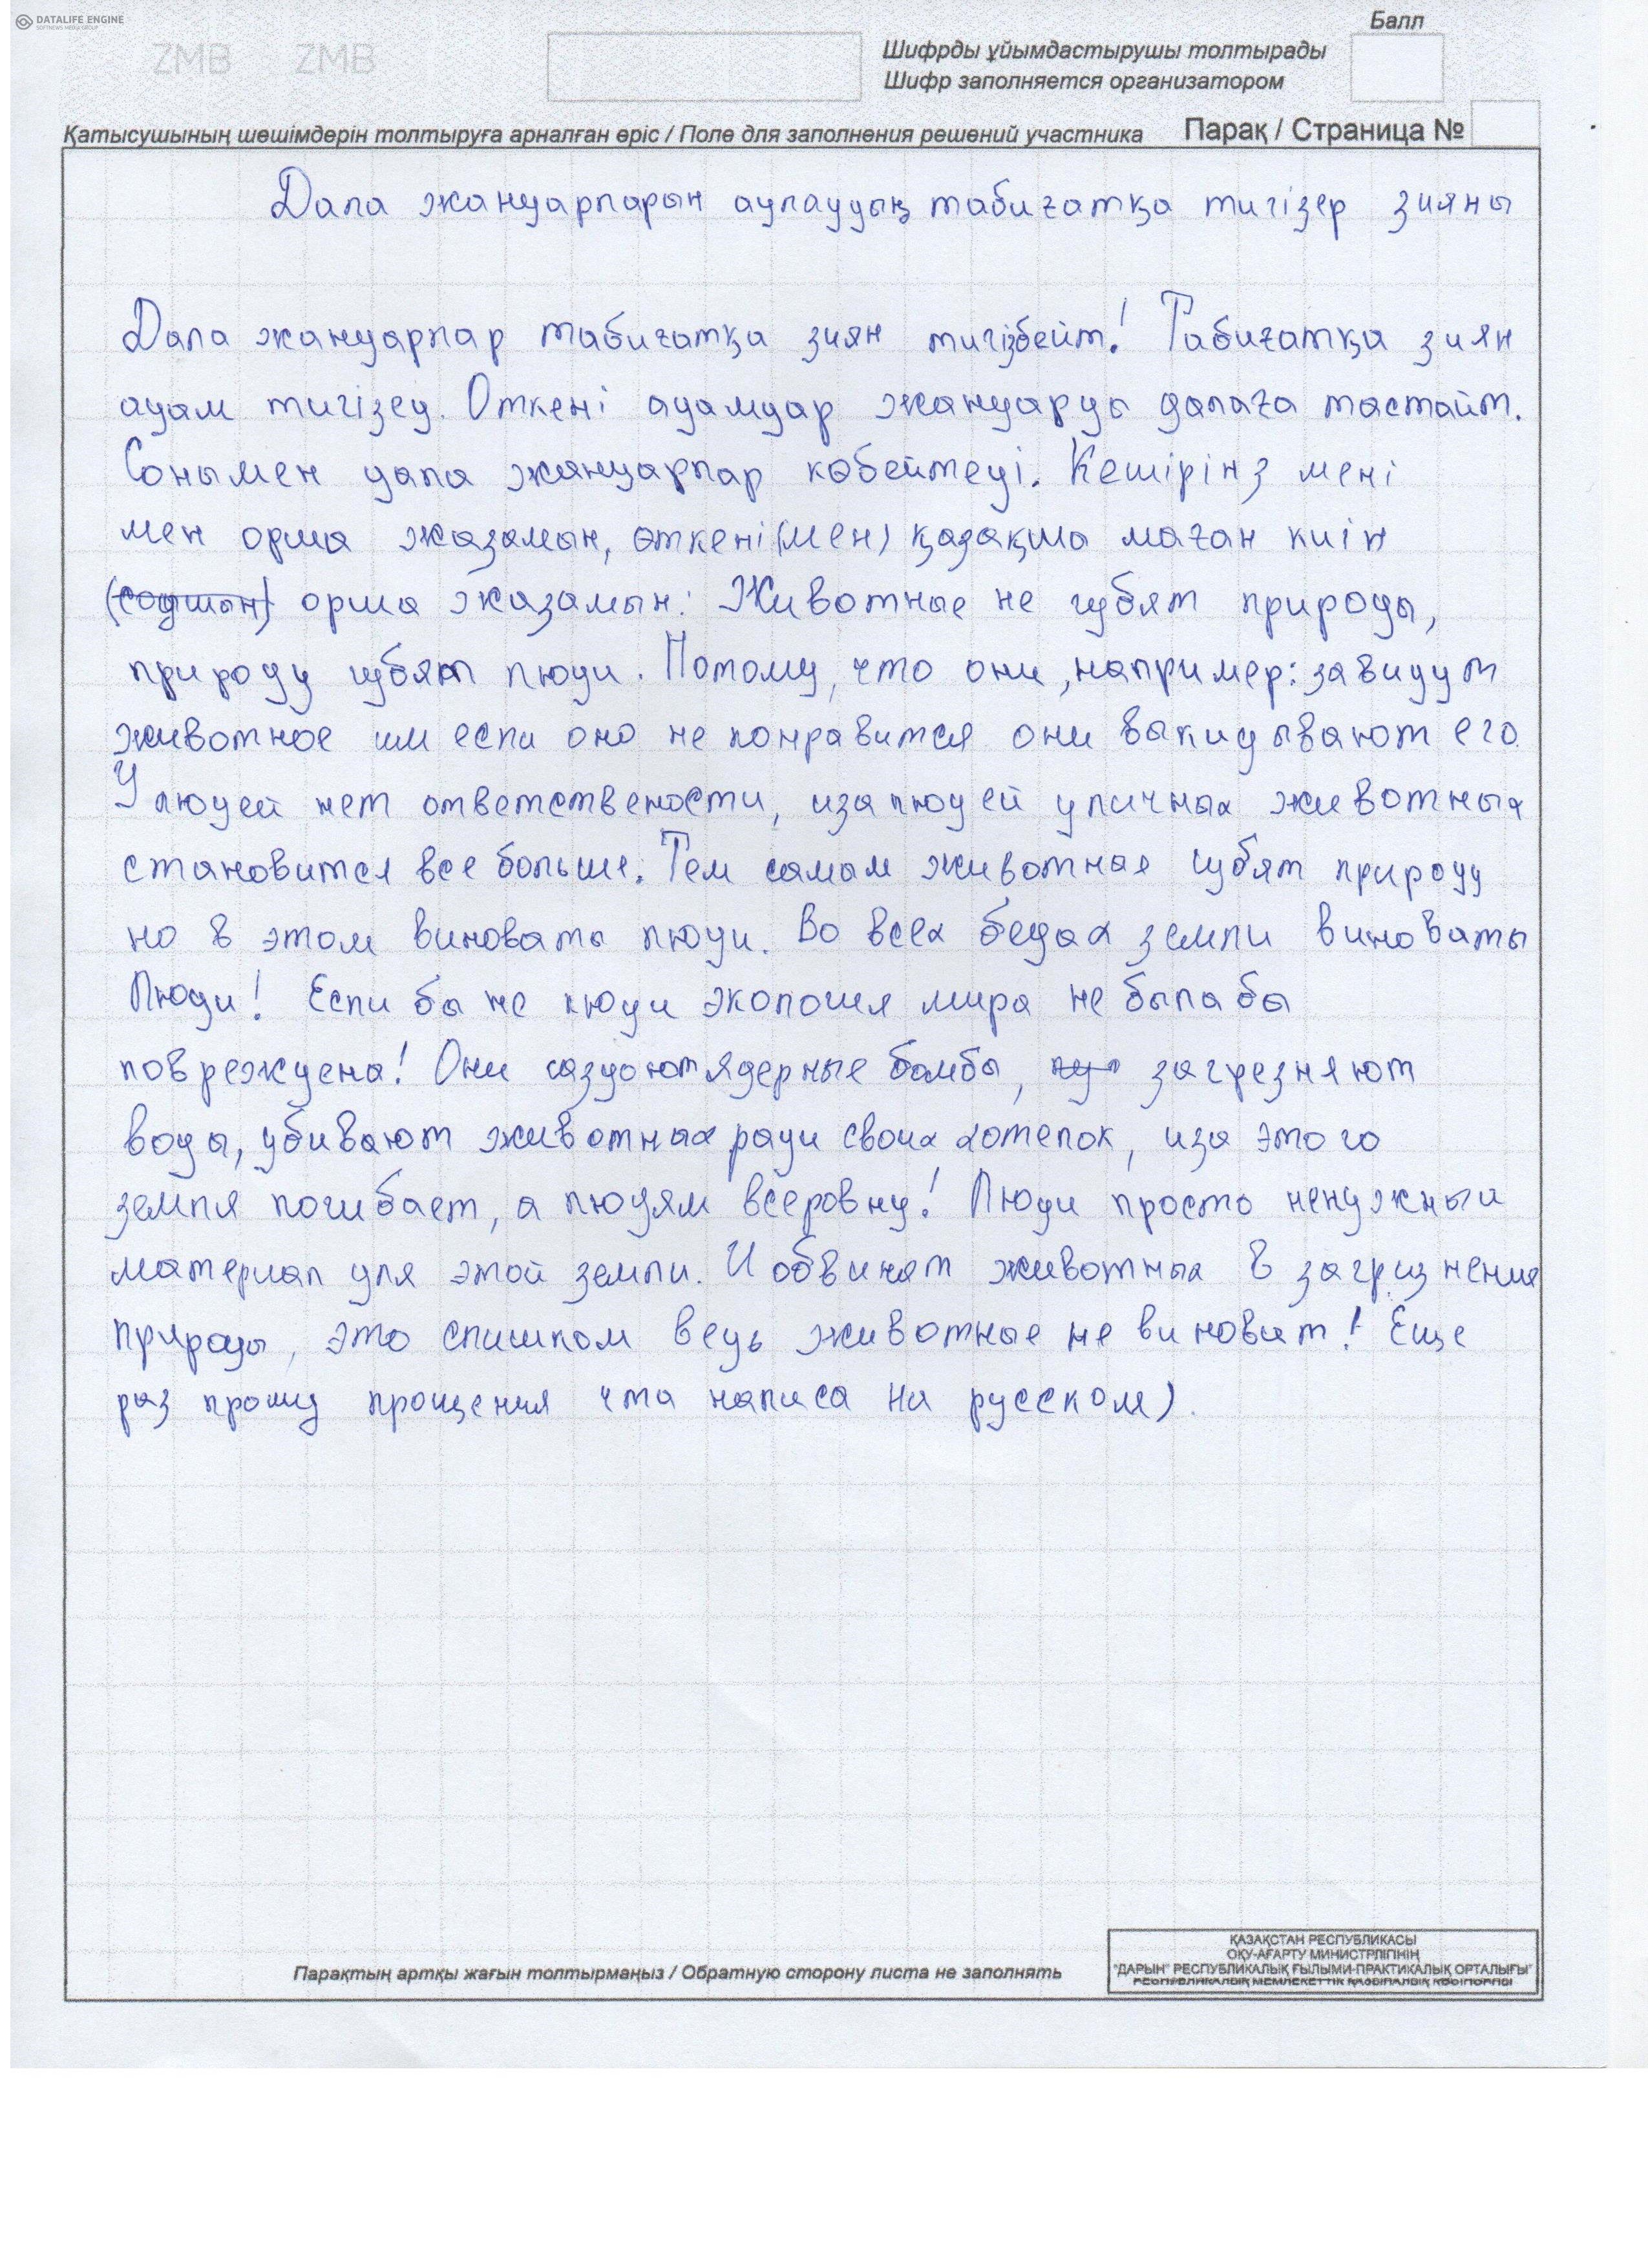 DATALIFE ENGINE
SOFTNEWS MEDIA GROUP
Балл
ZMB ZMB
Шифрды ұйымдастырушы толтырады
Шифр заполняется организатором
Қатысушының шешімдерін толтыруға арналған өріс / Поле для заполнения решений участника Парақ / Страница №
Дала жануарларын аулаудың табиғатқа тигізер зияны
Дала жануарлар табиғатқа зиян тигізбейт! Табиғатқа зиян
адам тигізед. Откені адамдар жануарды далаға тастайт.
Сонымен дала жануарлар көбейтеді. Кешірінз мені
мен орша жазамын, өткені (мен) қазақша маған киін
орша жазамын: Животные не губят природы,
природу губят люди. Потому, что они, например: завидут
животное им если оно не понравится они выкидывают его.
У людей нет ответствености, иза людей уличных животных
становится все больше. Тем самым животная губят природу
но в этом виноваты люди. Во всех бедах земли виноваты
Люди! Если бы не люди экология мира не была бы
повреждена! Они саздают ядерные бомбы, загрезняют
воды, убивают животных ради своих хотелок, иза этого
земля погибает, а людям всеровну! Люди просто ненужный
материал для этой земли. И обвинят животных в загризнения
природы, это слишком ведь животные не виноват! Еще
раз прошу прощения что написа на русском).
Парақтың артқы жағын толтырмаңыз / Обратную сторону листа не заполнять
ҚАЗАҚСТАН РЕСПУБЛИКАСЫ
ОҚУ-АҒАРТУ МИНИСТРЛІГІНІҢ
"ДАРЫН" РЕСПУБЛИКАЛЫҚ ҒЫЛЫМИ-ПРАКТИКАЛЫҚ ОРТАЛЫҒЫ"
РЕСПУБЛИКАЛЫҚ МЕМЛЕКЕТТІК ҚАЗЫНАЛЫҚ КӘСІПОРНЫ